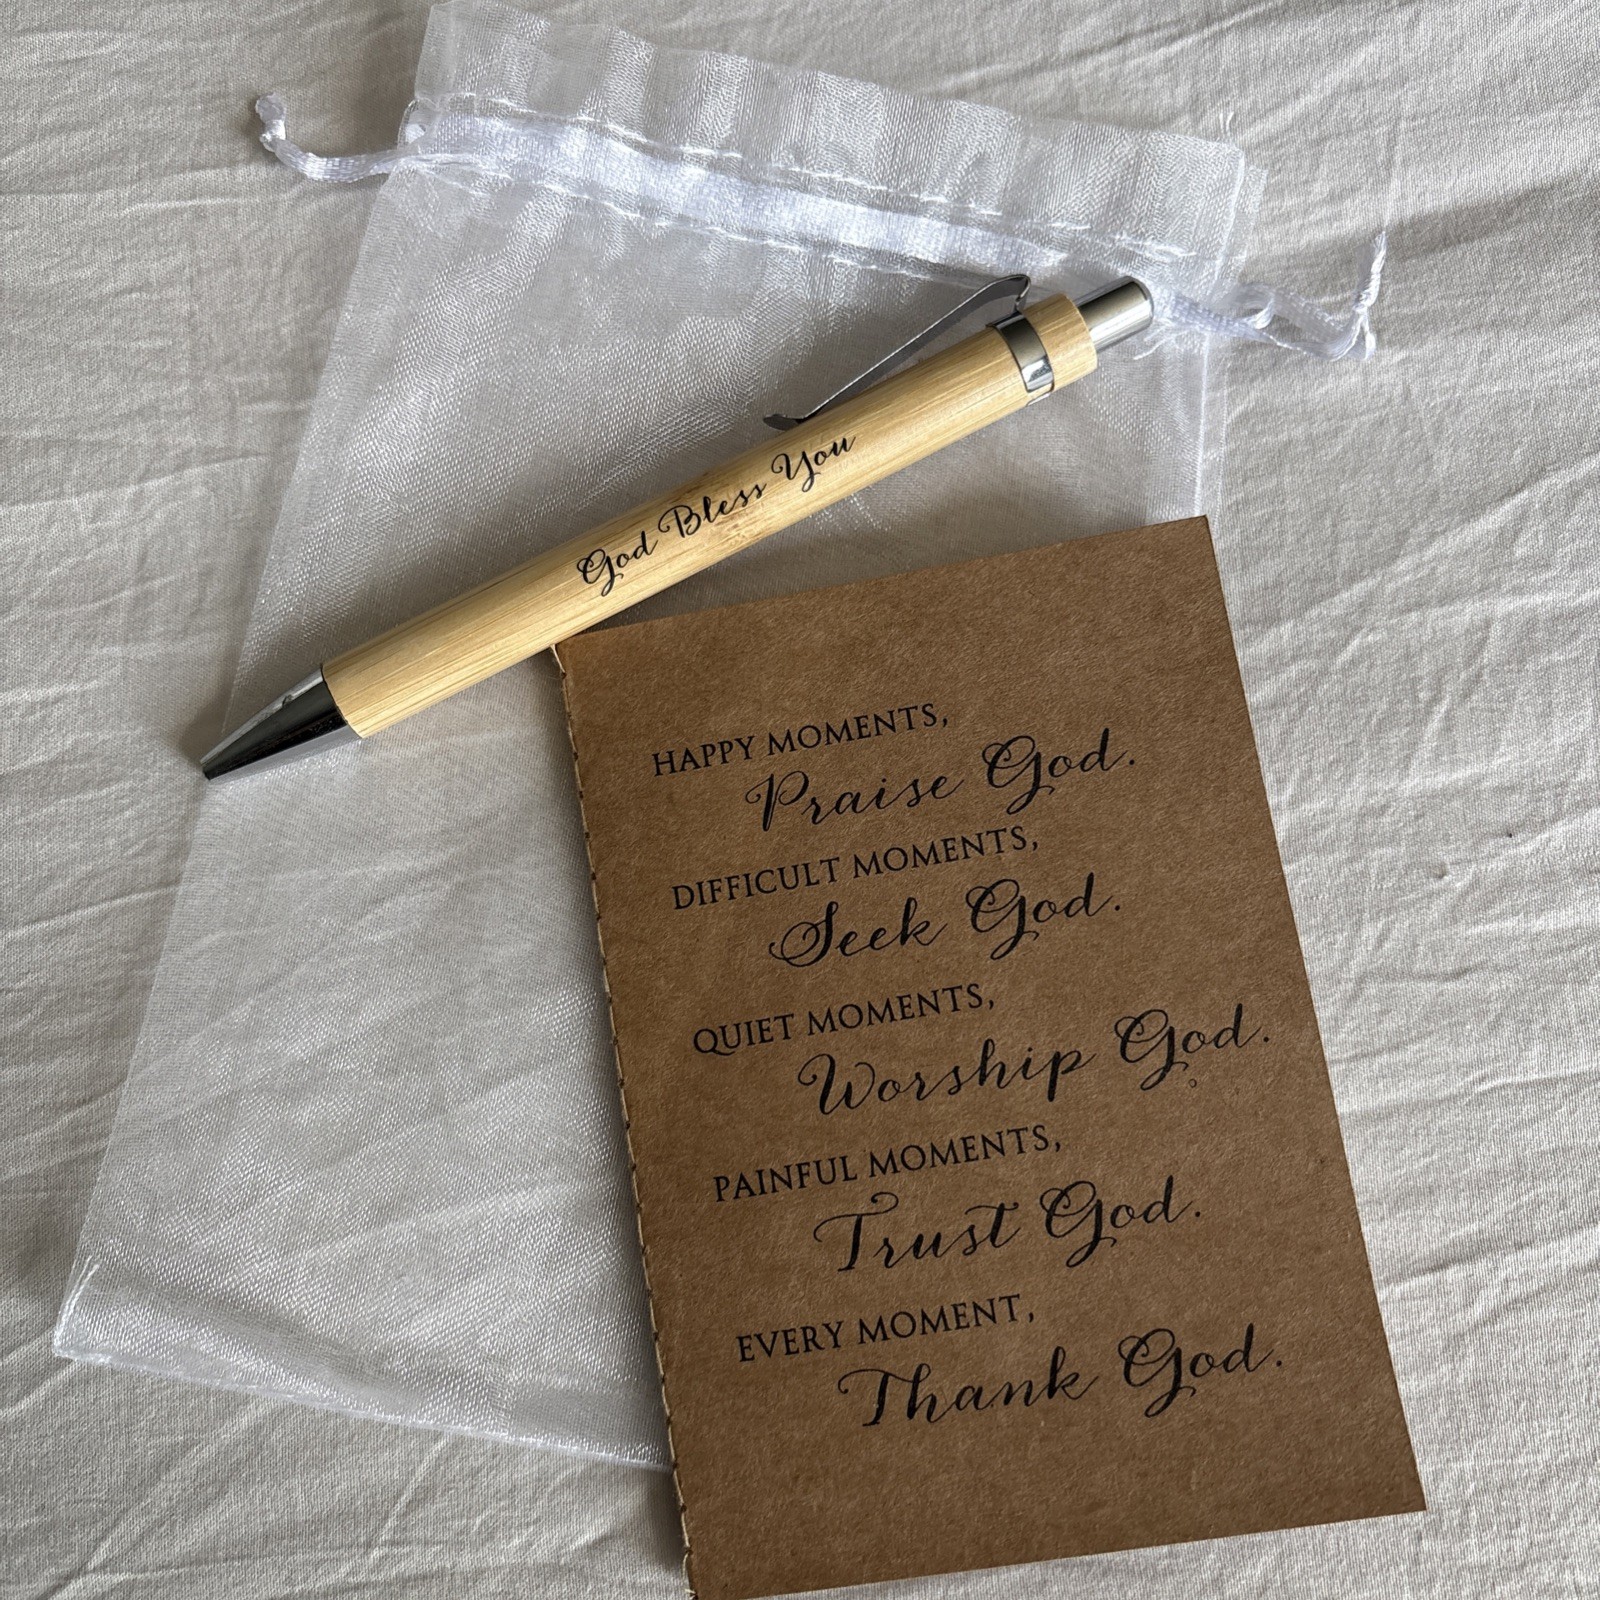 God Bless You
HAPPY MOMENTS,
Praise God.
DIFFICULT MOMENTS,
Seek God.
QUIET MOMENTS,
Worship God.
PAINFUL MOMENTS,
Trust God.
EVERY MOMENT,
Thank God.